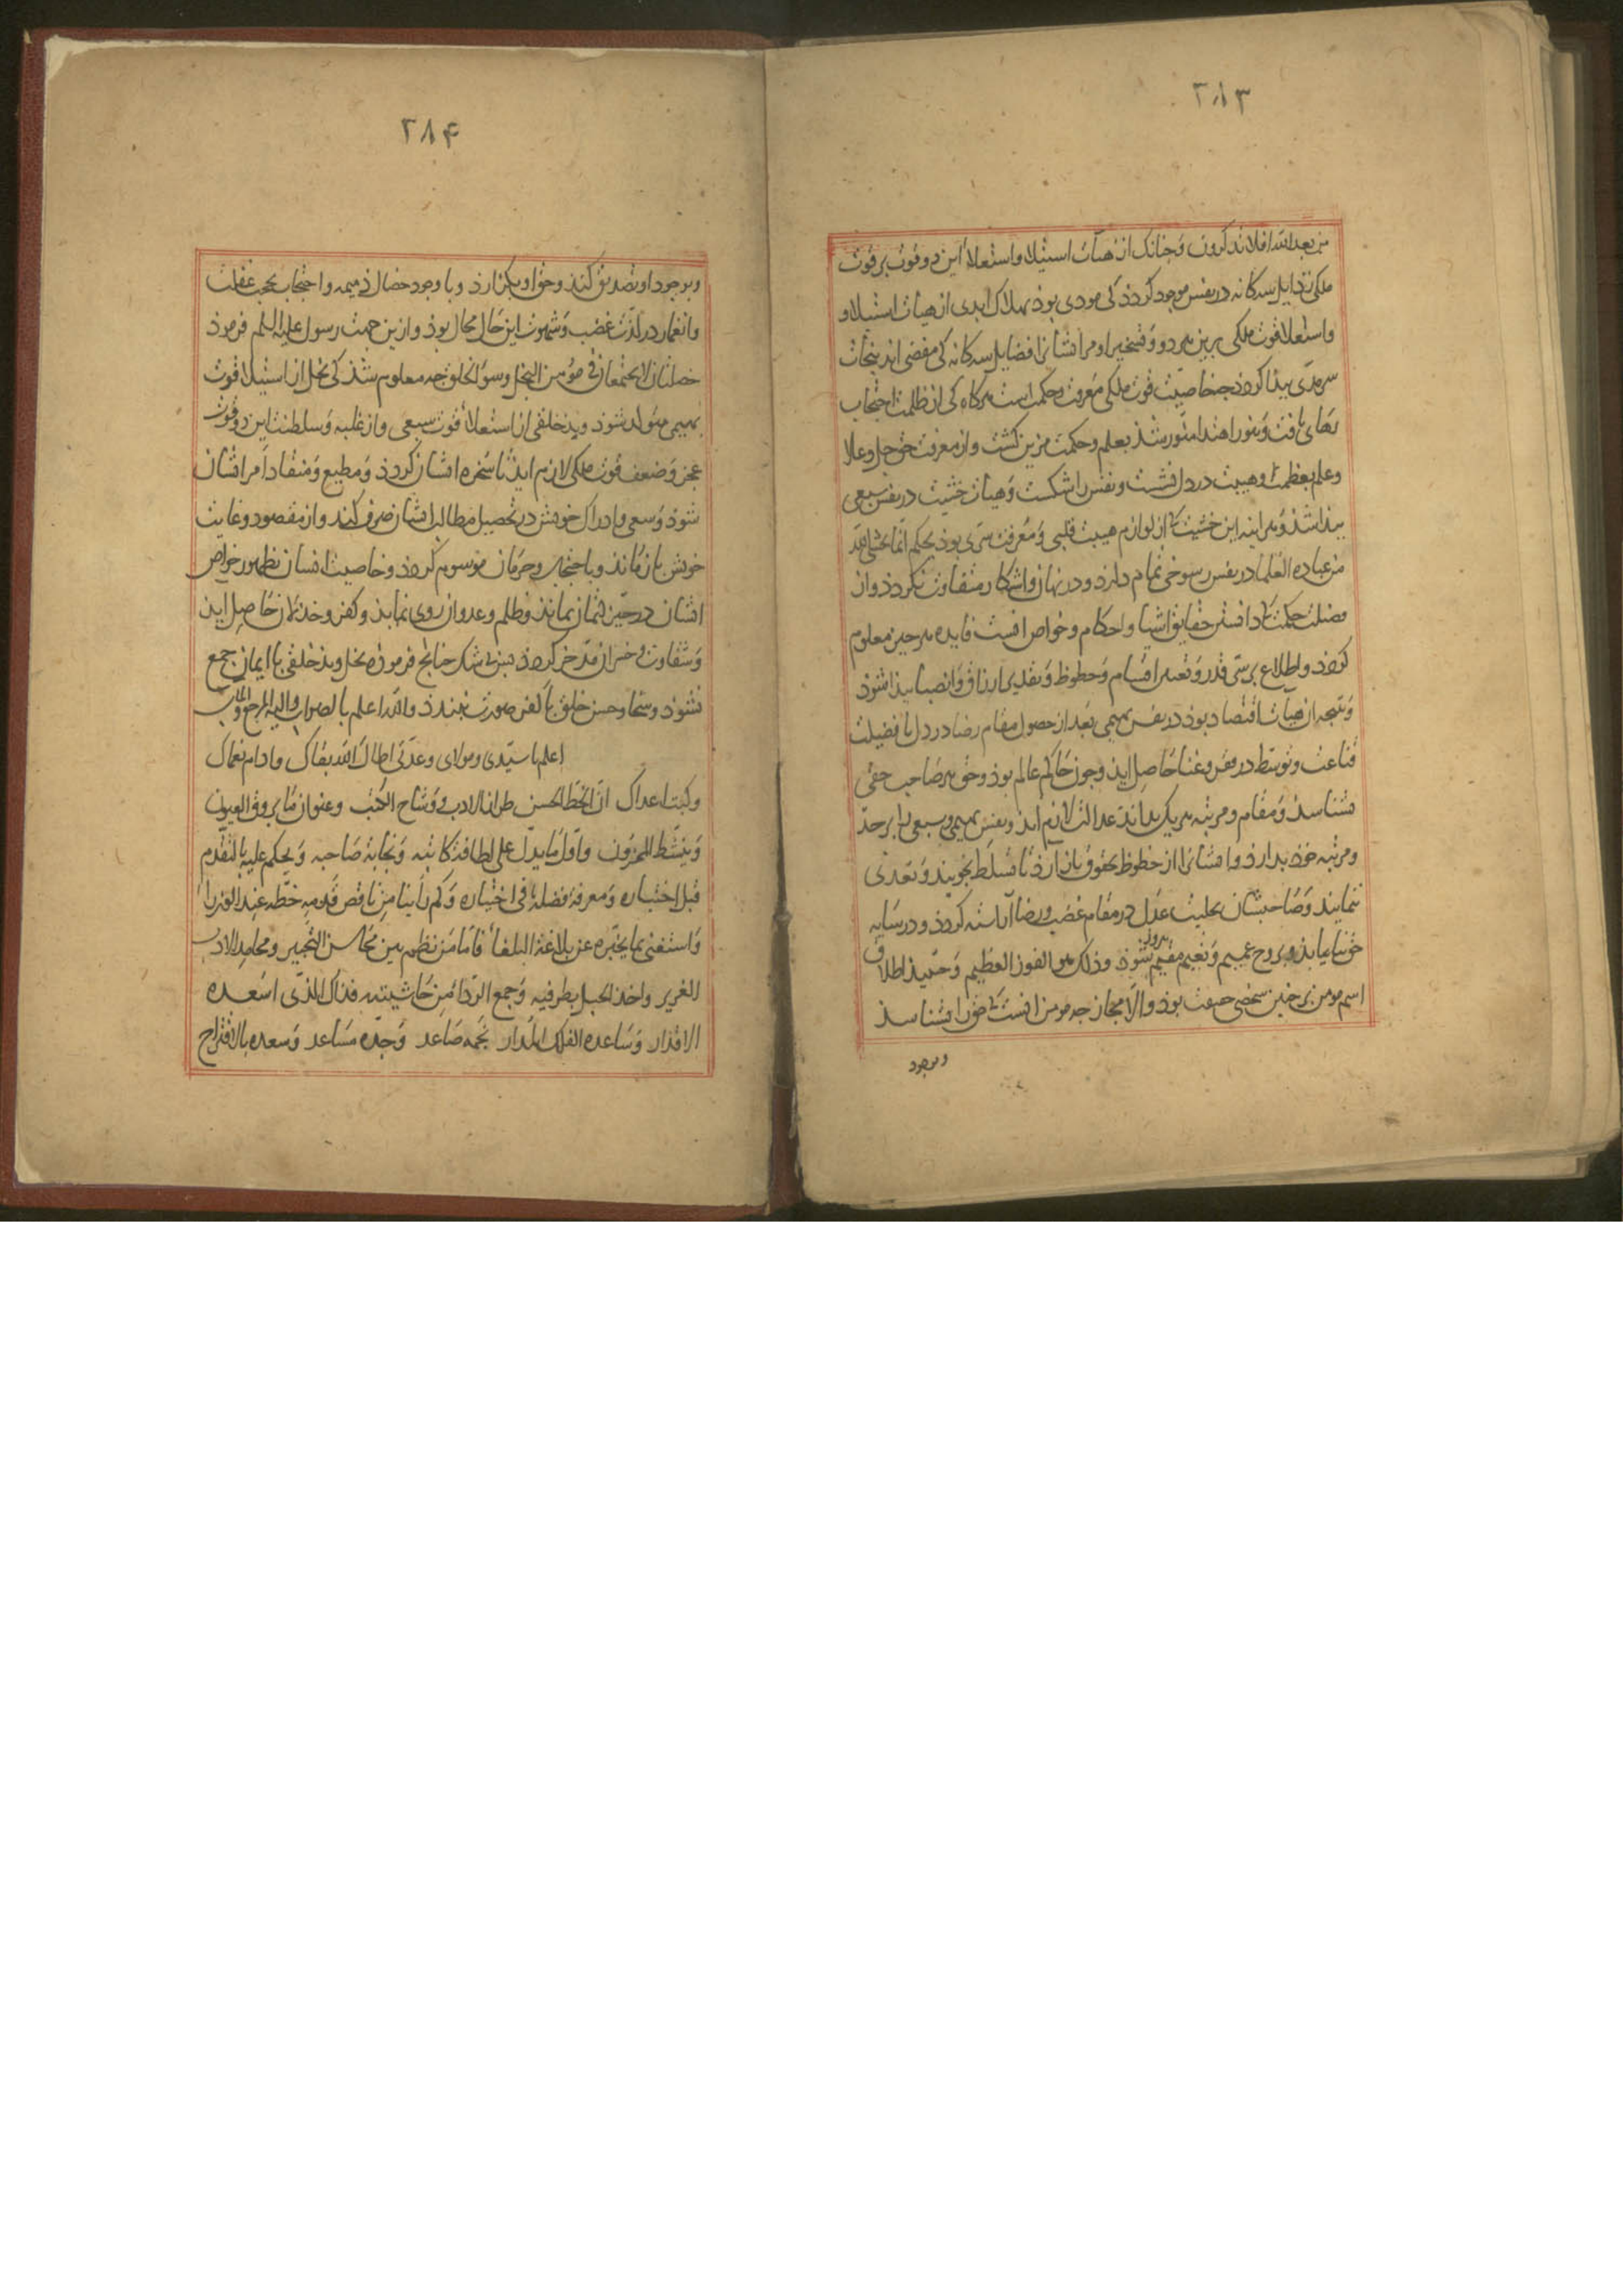 ۲۸۳
من بعد الله افلا تذکرون و چنانک از هیآت استیلا و استعلاء این دو قوت بر قوت
ملکی رذایل سه کانه در نفس موجود کردذ کی مودی بوذ بهلاک ابدی از هیات استیلا و
واستعلا قوت ملکی برین هر دو و تسخیر او مر ایشانرا فضایل سه کانه کی مفضی اند بنجات
سرمدی بیذا کردذ جه خاصیت قوت ملکی معرفت و حکمت است هرکاه کی از ظلمت احتجاب
رهای یافت و بنور اهتدا منور شذ بعلم و حکمت مزین کشت و از معرفت حق جل و علا
و علم بعظمت او هیبت در دل نشست و نفس را شکست و هیات خشیت در نفس سبعی
بیذا شذ و هر اینه این خشیت که از لوازم هیبت قلبی و معرفت سری بوذ بحکم انما یخشی الله
من عباده العلما در نفس رسوخی تمام دارد و در نهان و اشکار متفاوت نکردذ و از
فضیلت حکمت که دانستن حقایق اشیا و احکام و خواص انست فایده هر جیز معلوم
کردذ و اطلاع بر سر قدر و تعیین اقسام و حظوظ و تقدیر ارزاق و انصبا بیذا شوذ
و نتیجه ان هیات اقتصاد بوذ در نفس بهیمی بعد از حصول مقام رضا در دل با فضیلت
قناعت و توسط در فقر و غنا حاصل ایذ و جون حاکم عالم بوذ و حق هر صاحب حقی
بشناسذ و مقام و مرتبه هر یک بداند عدالت لازم ایذ و نفس بهیمی و سبعی را بر حد
و مرتبه خوذ بدارذ و ایشانرا از حظوظ بحقوق باز آرذ تا تسلط نجویند و تعدی
ننمایند و صاحبشان بحلیت عدل در مقام غضب و رضا آراسته کردذ و در سایه
حق بیاسایذ و بروح عمیم و نعیم مقیم بیروز شوذ و ذلک هو الفوز العظیم و حینیذ اطلاق
اسم مومن بر جنین شخصی حقیقت بوذ و الا مجاز جه مومن انست که حق را بشناسذ
و بوجود
۲۸۴
و بوجود او تصدیق کند و حق او بکزارذ و با وجود خصال ذمیمه و احتجاب بحجب غفلت
و انغمار در لذت غضب و شهوت این حال محال بوذ و ازین جهت رسول علیه السلم فرموذ
خصلتان لا یجتمعان فی مؤمن البخل و سوء الخلق جه معلوم شذ کی بخل از استیلا قوت
بهیمی متولد شوذ و بذ خلقی از استعلاء قوت سبعی و از غلبه و سلطنت این دو قوت
عجز و ضعف قوت ملکی لازم ایذ تا سخره ایشان کردذ و مطیع و منقاد امر ایشان
شوذ و سعی و ادراک خویش در تحصیل مطالب ایشان صرف کند و از مقصود و غایت
خویش باز ماند و باحتجاب و حرمان موسوم کردذ و خاصیت انسان بظهور خواص
ایشان در حیز کتمان بماند و ظلم و عدوان روی نمایذ و کفر و خذلان حاصل ایذ
و شقاوت و خسران مدخر کردذ بس بی شک جنانج فرموذ بخل و بذ خلقی با ایمان جمع
نشوذ و سخا و حسن خلق با کفر صورت نبندذ والله اعلم بالصواب و الیه المرجع و المآب
اعلم یا سیدی و مولای و عدتی اطال الله بقاک و ادام نعماک
و کبت اعداک ان الخط الحسن طراز الادب و وشاح الکتب و عنوان ما یروق العیون
و ینشط المحزون و اول ما یدل علی لطافة کاتبه و نجابة صاحبه و یحکم علیه بالتقدم
قبل اختباره و معرفة فضله فی اختیاره و کم راینا من ناقص قدمه خطه عند الوزراء
و استغنی بما یخبره عن بلاغة البلغاء فاما من نظم بین محاسن التحبیر و محامد الادب
الغریر و اخذ الحبل بطرفیه و جمع الرداء من حاشیتیه فذاک الذی اسعده
الاقدار و ساعده الفلک المدار نجمه صاعد و جده مساعد و سعده بالاقتراح